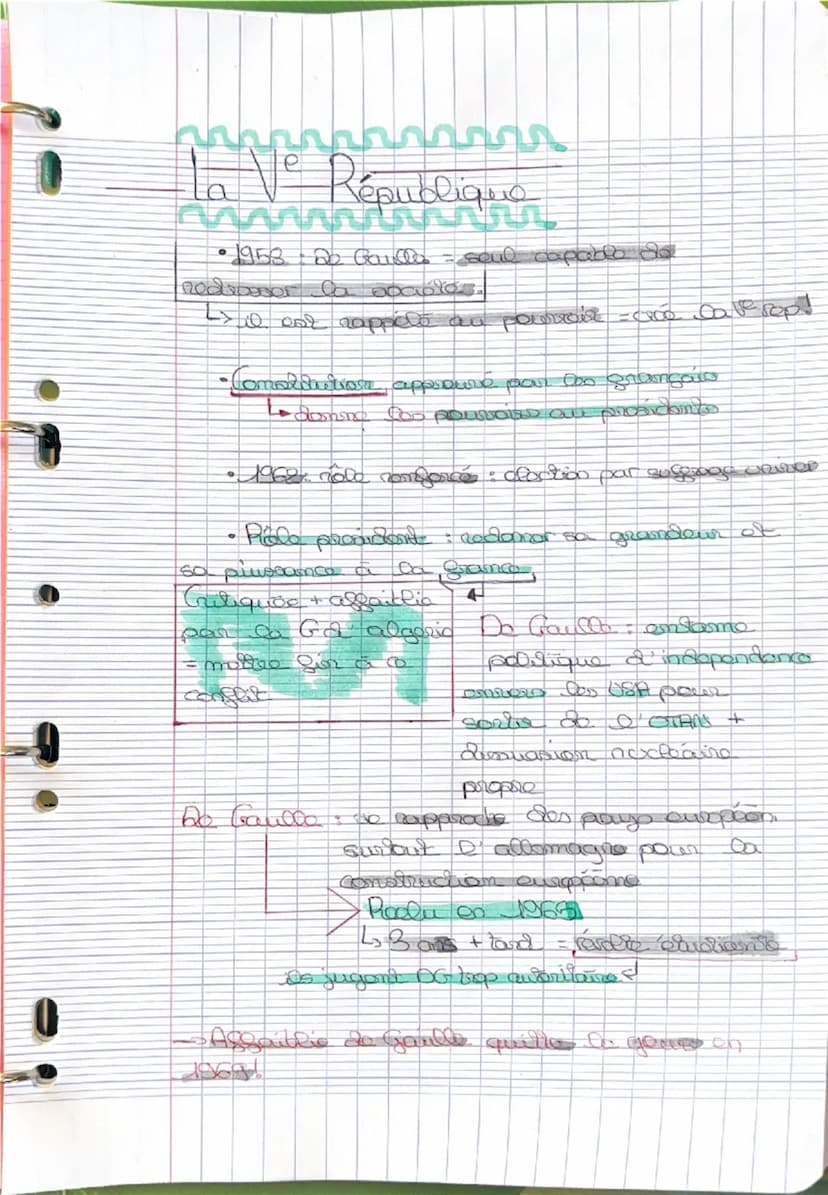 La Ve République
• 1958 : De Gaulle = seul capable de
redresser la société.
↳ il est rappelé au pouvoir = crée la Ve rep!
• Constitution approuvé par les français
↳ donne les pouvoirs au président
• 1962: rôle renforcé : élection par suffrage
• Rôle président : redonner sa grandeur et
sa puissance à la France
Critiquée + affaiblie
par la G d'algérie
= mettre fin à ce
conflit
De Gaulle : entame
politique d'indépendance
envers les USA pour
sortir de l'OTAN +
dissuasion nucléaire
propre
De Gaulle : se rapproche des pays européen.
surtout l'allemagne pour la
construction européenne
Réélu en 1965
↳ 3 ans + tard = révolte étudiante
ils jugent DG trop autoritaire!
→ Affaiblie de Gaulle quitte le en
1969!